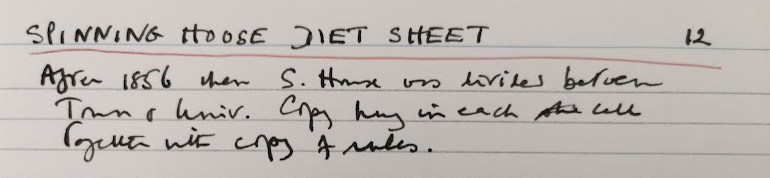 SPINNING HOOSE DIET SHEET 12
After 1856 when S. House was divided between
Town & Univ. Copy hung in each cell
Together with copy of rules.